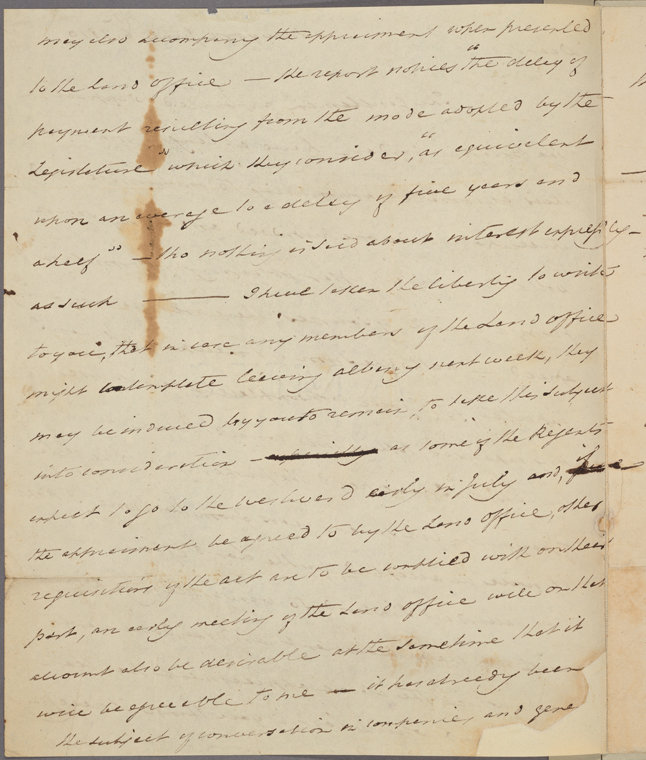 may also accompany the appraisment when presented
to the Land office — the report notices "the delay of
payment resulting from the mode adopted by the
Legislature" which they consider, "as equivalent
upon an average to a delay of five years and
a half" — tho nothing is said about interest expressly —
as such — I have taken the liberty to write
to you, that in case any members of the Land office
might contemplate leaving albany next week, they
may be induced by you to remain, to take this subject
into consideration — as some of the Regents
expect to go to the westward early in July and, if
the appraisment be agreed to by the Land office, other
requisitions of the act are to be complied with on their
part, an early meeting of the Land office will on that
account also be desirable at the sametime that it
will be agreeable to me — it has already been
the subject of conversation in companies and gene